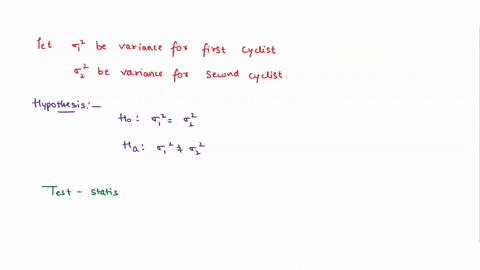 Let σ₁² be variance for first cyclist
σ₂² be variance for second cyclist.
Hypothesis:-
H₀: σ₁² = σ₂²
Hₐ: σ₁² ≠ σ₂²
Test - statis